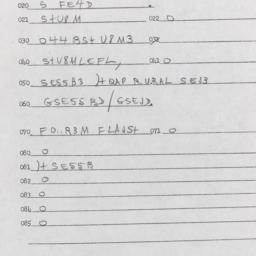 020 S FE4D .
021 S+U8M 022 0
030 044RS+U8M3 032
040 S+V8MLEFL, 042 0
050 SE55B3 )+QAP RURAL SEJ3
060 GSE55B3/GSEJ3.
070 FO..R3M FLAUS+ 072 0
080 0
081 )+SE55B
082 0
083 0
084 0
085 0